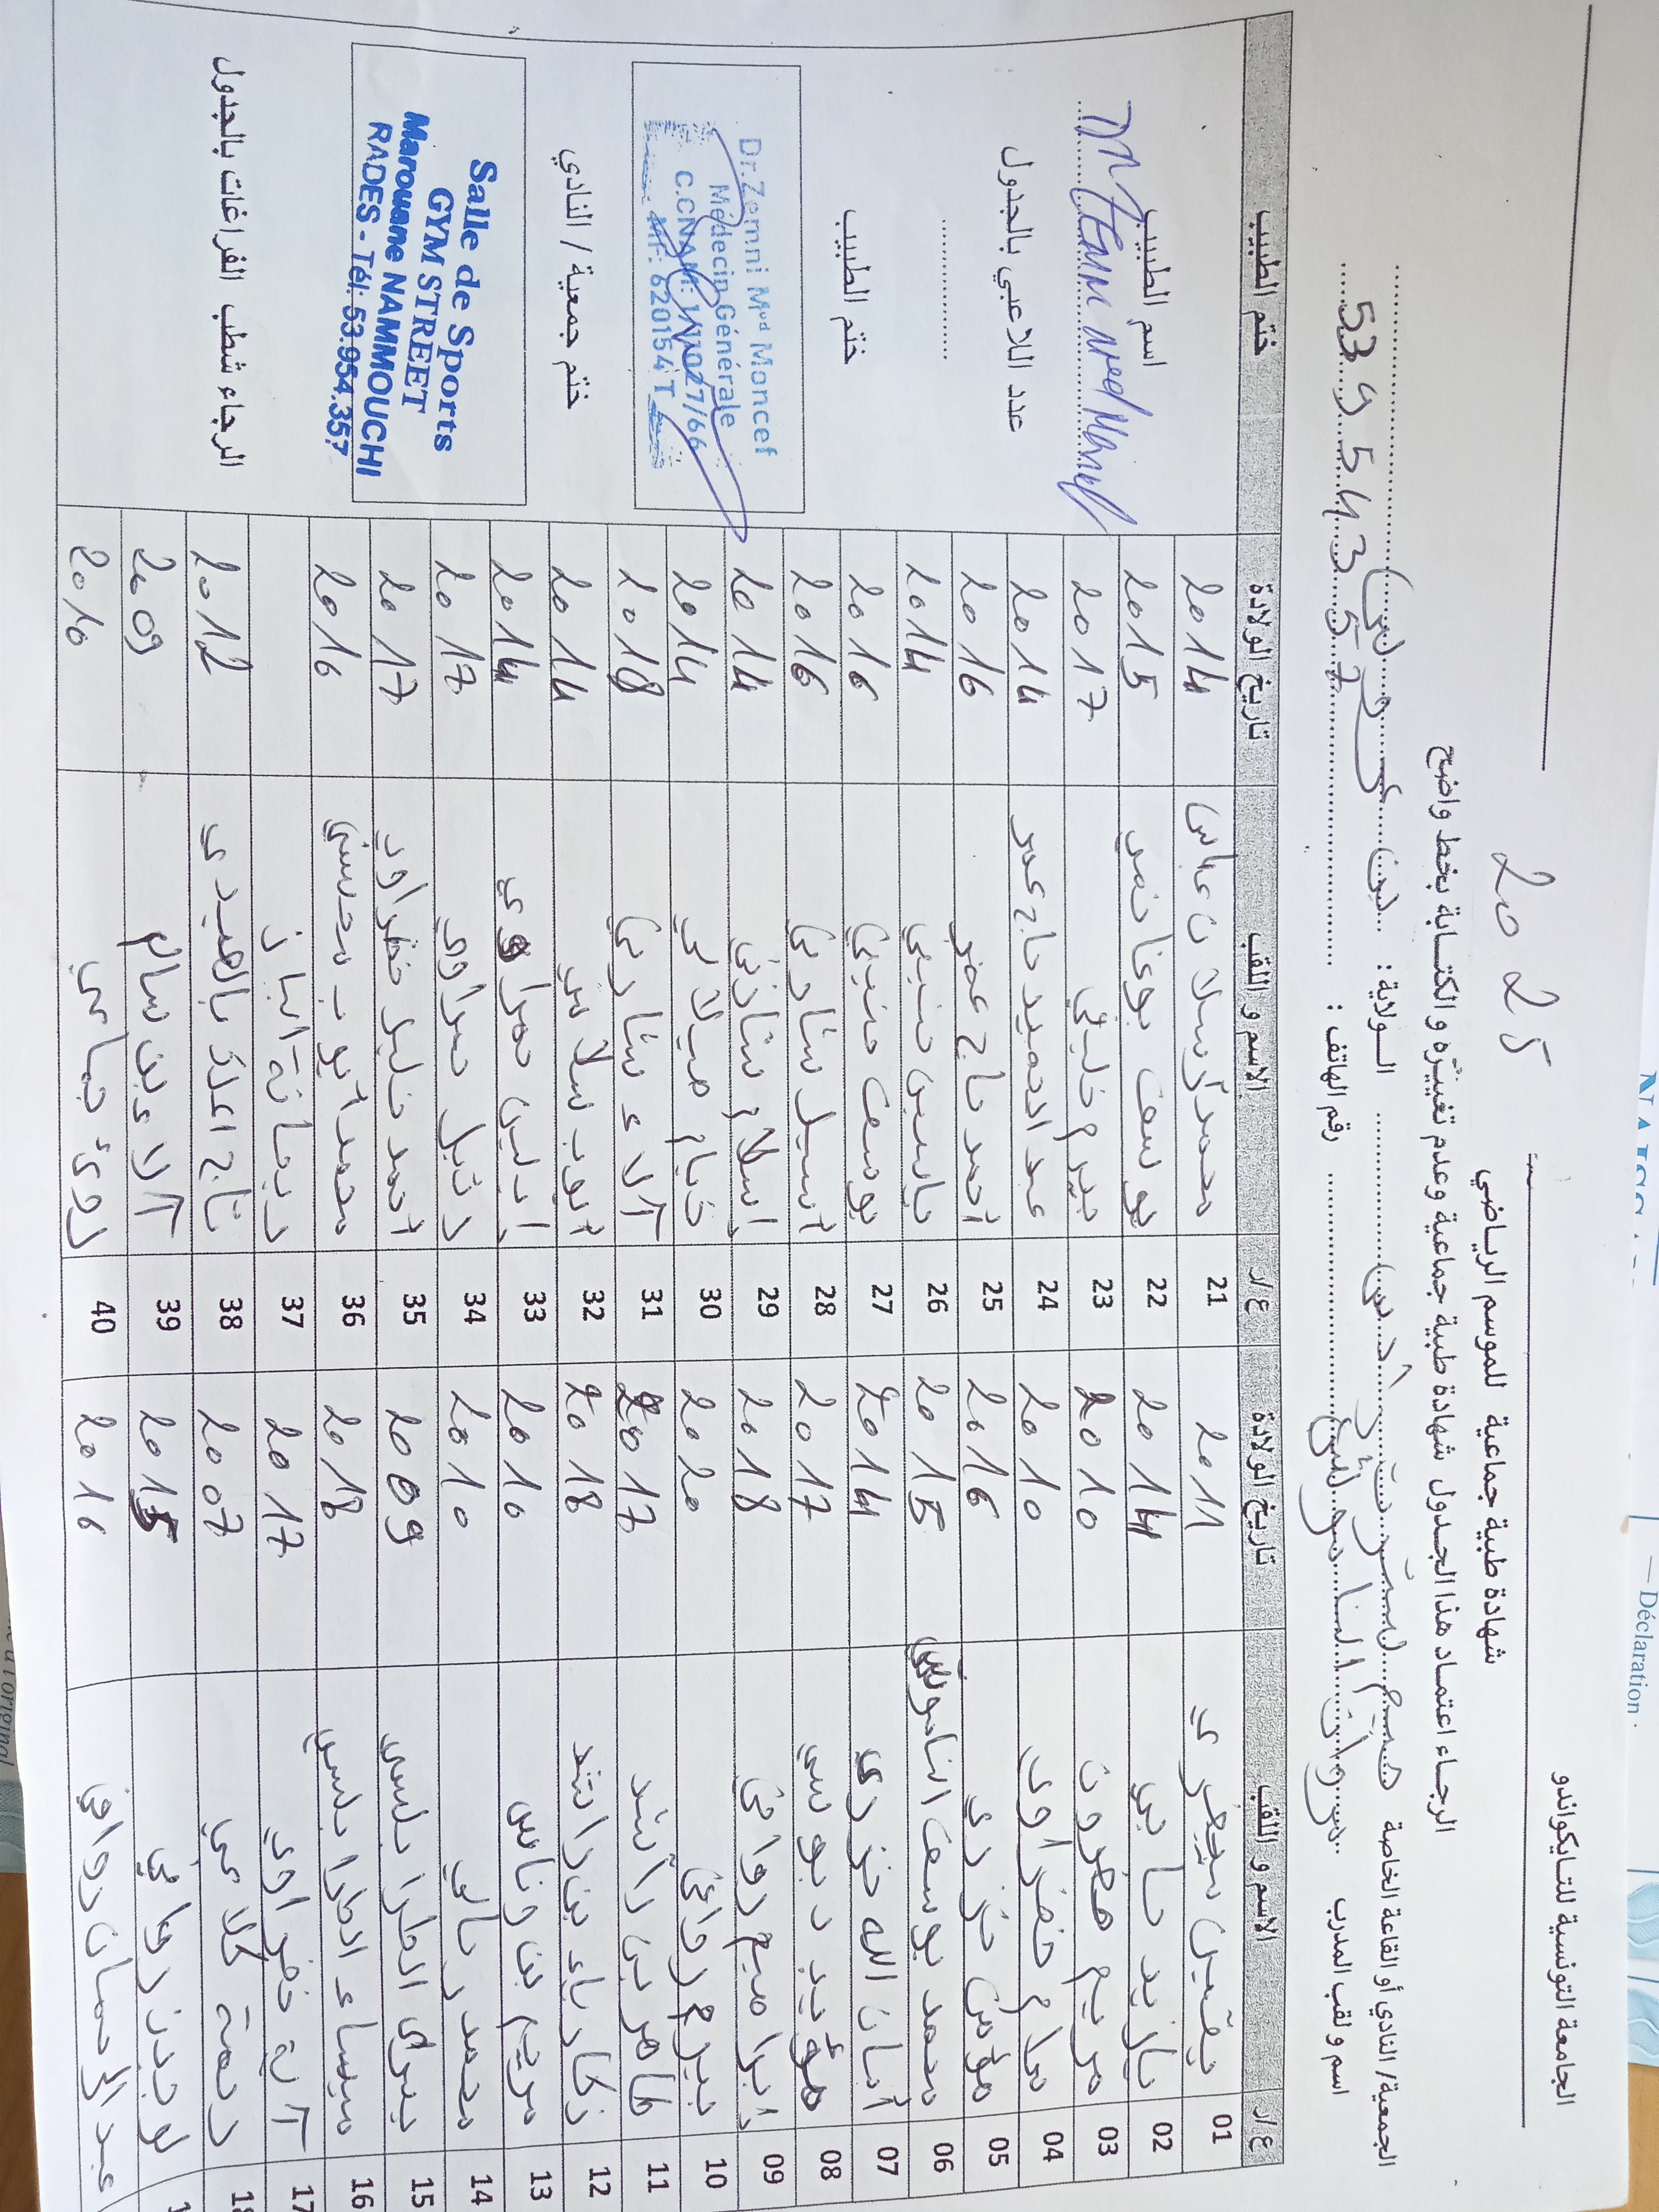 الجامعة التونسية للتايكواندو
شهادة طبية جماعية للموسم الرياضي 2025
الرجاء اعتماد هذا الجدول شهادة طبية جماعية وعدم تغييره والكتابة بخط واضح
الجمعية/ النادي أو القاعة الخاصة جيم ستريت رادس الولاية : بن عروس
اسم و لقب المدرب مروان الناموشي رقم الهاتف : 53954357
ع/ر الاسم و اللقب تاريخ الولادة ع/ر الاسم و اللقب تاريخ الولادة ختم الطبيب
01 يقين 2011 21 محمد أرسلان عباس 2014
02 يازيد حابي 2014 22 يوسف بوغانمي 2015
03 مريم 2010 23 بيرم خليفي 2017
04 مرام خضراوي 2010 24 عبد الحميد حاج عمر 2014
05 مؤمن خزري 2016 25 أحمد حاج عمر 2016
06 محمد يوسف الناموشي 2015 26 ياسين حبيبي 2014
07 أمان الله خزري 2014 27 يوسف حبيبي 2016
08 مؤيد دبوسي 2017 28 أسيل شارني 2016
09 إبراهيم روافي 2018 29 إسلام شارني 2014
10 بيرم روافي 2020 30 خيام ميلادي 2014
11 طاهر بن راشد 2017 31 آلاء شارني 2018
12 زكارياء بن راشد 2018 32 أيوب سلامي 2014
13 مريم بن وناس 2010 33 إدلين حمراوي 2014
14 محمد رحالي 2010 34 نبيل حمراوي 2017
15 يسرى الطرابلسي 2009 35 أحمد خليل خضراوي 2017
16 ميساء الطرابلسي 2018 36 محمد أيوب محسني 2016
17 آية خضراوي 2017 37 ريحانة الباز
2007 38 تاج 2012
لوجين روافي 2015 39 آلاء بن سالم 2009
عبد الرحمان روافي 2016 40 رؤى جماعي 2010
اسم الطبيب
عدد اللاعبي بالجدول
ختم الطبيب
Dr.Zemni Med Moncef
Médecin Générale
C.CNAM: 1/11027/66
MF: 620154 T
ختم جمعية / النادي
Salle de Sports
GYM STREET
Marouane NAMMOUCHI
RADES - Tél: 53.954.357
الرجاء شطب الفراغات بالجدول
— Déclaration